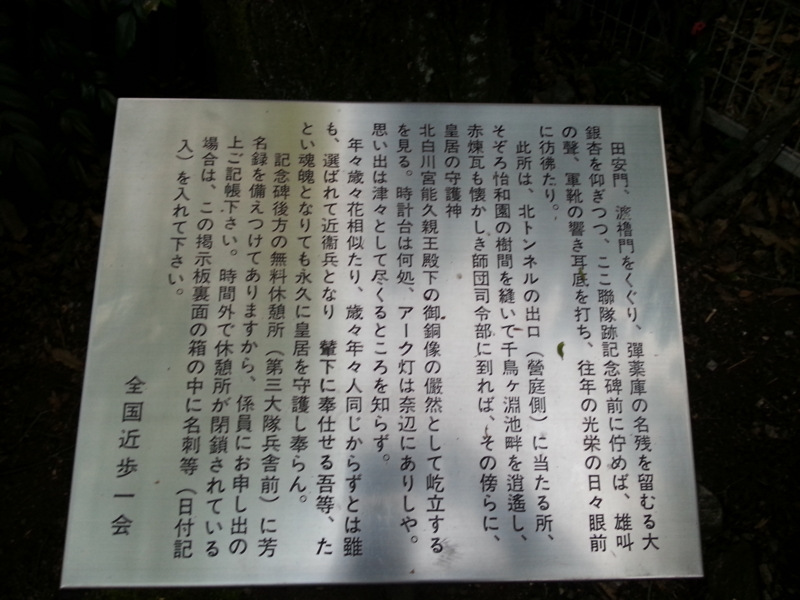 田安門、渡櫓門をくぐり、彈薬庫の名残を留むる大
銀杏を仰ぎつつ、ここ聯隊跡記念碑前に佇めば、雄叫
の聲、軍靴の響き耳底を打ち、往年の光栄の日々眼前
に彷彿たり。
此所は、北トンネルの出口（營庭側）に当たる所、
そぞろ怡和園の樹間を縫いで千鳥ヶ淵池畔を逍遙し、
赤煉瓦も懐かしき師団司令部に到れば、その傍らに、
皇居の守護神
北白川宮能久親王殿下の御銅像の儼然として屹立する
を見る。時計台は何処、アーク灯は奈辺にありしや。
思い出は津々として尽くるところを知らず。
年々歳々花相似たり、歳々年々人同じからずとは雖
も、選ばれて近衞兵となり　輦下に奉仕せる吾等、た
とい魂魄となりても永久に皇居を守護し奉らん。
記念碑後方の無料休憩所（第三大隊兵舎前）に芳
名録を備えつけてありますから、係員にお申し出の
上ご記帳下さい。時間外で休憩所が閉鎖されている
場合は、この掲示板裏面の箱の中に名刺等（日付記
入）を入れて下さい。
全国近歩一会